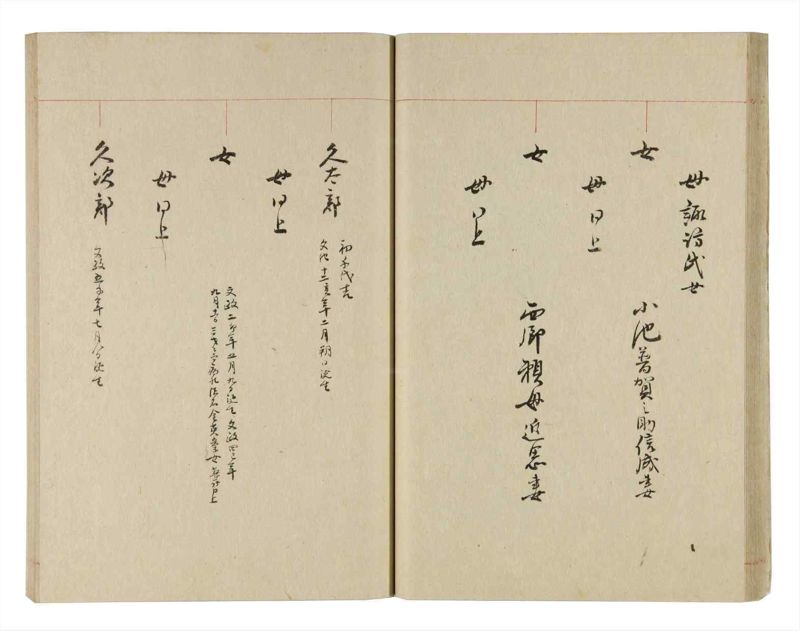 母諏訪氏女
女
小池曽賀之助信成妻
母同上
女
西郷頼母近悳妻
母同上
久太郎
初千代吉
文化十二亥年二月朔日誕生
母同上
女
文政二卯年五月九日誕生文政四巳年
九月
母同上
久次郎
文政五午年七月 誕生